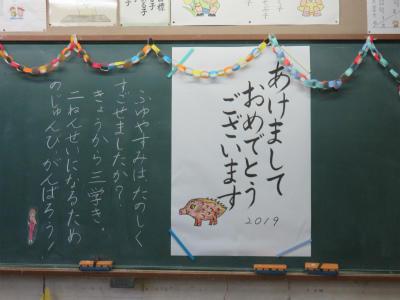 あけまして
おめでとう
ございます
2019
ふゆやすみはたのしく
すごせましたか?
きょうから三学き。
二ねんせいになるため
のじゅんび がんばろう!